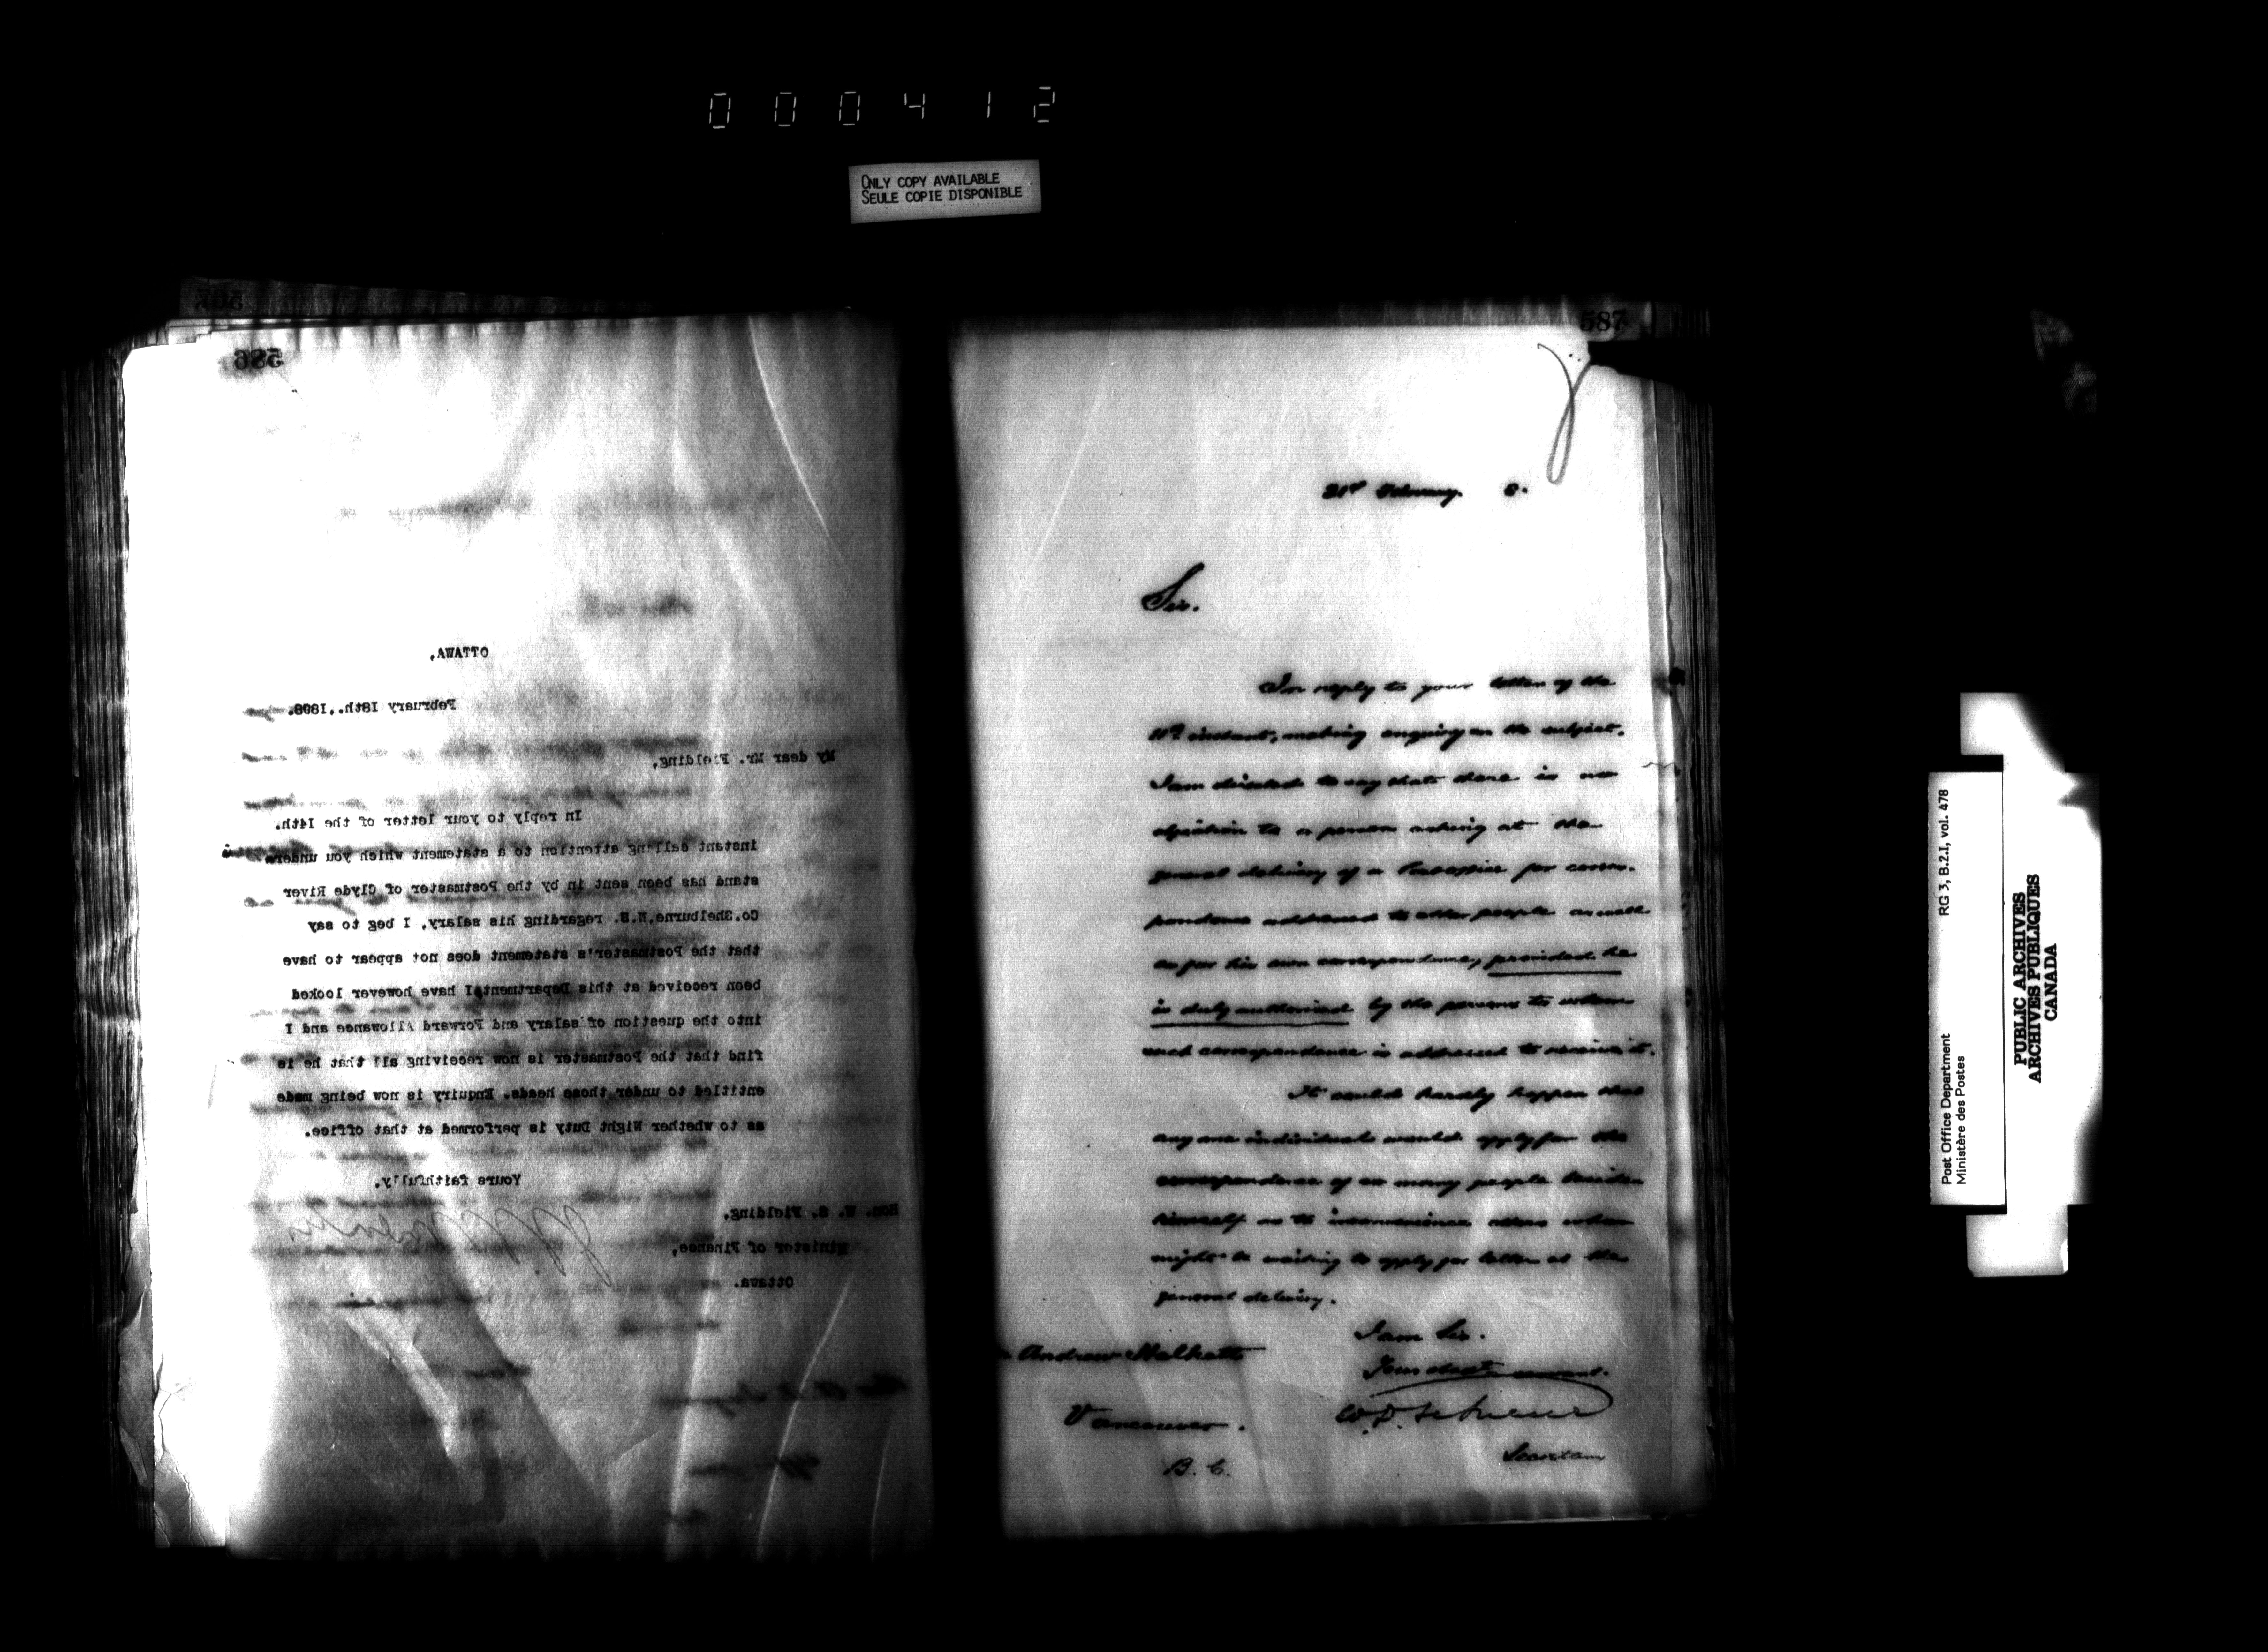 000412
ONLY COPY AVAILABLE
SEULE COPIE DISPONIBLE
586
OTTAWA,
February 18th., 1898.
My dear Mr. Fielding,
In reply to your letter of the 14th.
instant calling attention to a statement which you under-
stand has been sent in by the Postmaster of Clyde River
Co. Shelburne, N.S. regarding his salary, I beg to say
that the Postmaster's statement does not appear to have
been received at this Department. I have however looked
into the question of salary and Forward Allowance and I
find that the Postmaster is now receiving all that he is
entitled to under those heads. Enquiry is now being made
as to whether Wight Duty is performed at that office.
Yours faithfully.
Hon. W. S. Fielding,
Minister of Finance,
Ottawa.
587
21st February 8.
Sir.
In reply to your letter of the
11th instant, making enquiry on the subject.
I am directed to say that there is no
objection to a person asking at the
general delivery of a Post office for corres-
pondence addressed to other people as well
as for his own correspondence, provided he
is duly authorized by the persons to whom
such correspondence is addressed to receive it.
It could hardly happen that
any one individual would apply for the
correspondence of so many people beside
himself as to inconvenience others who
might be waiting to apply for letters at the
general delivery.
I am Sir.
Your obedt servant.
Andrew Halkett
Vancouver.
B. C.
Secretary
Post Office Department
Ministère des Postes
RG 3, B.2.I, vol. 478
PUBLIC ARCHIVES
ARCHIVES PUBLIQUES
CANADA